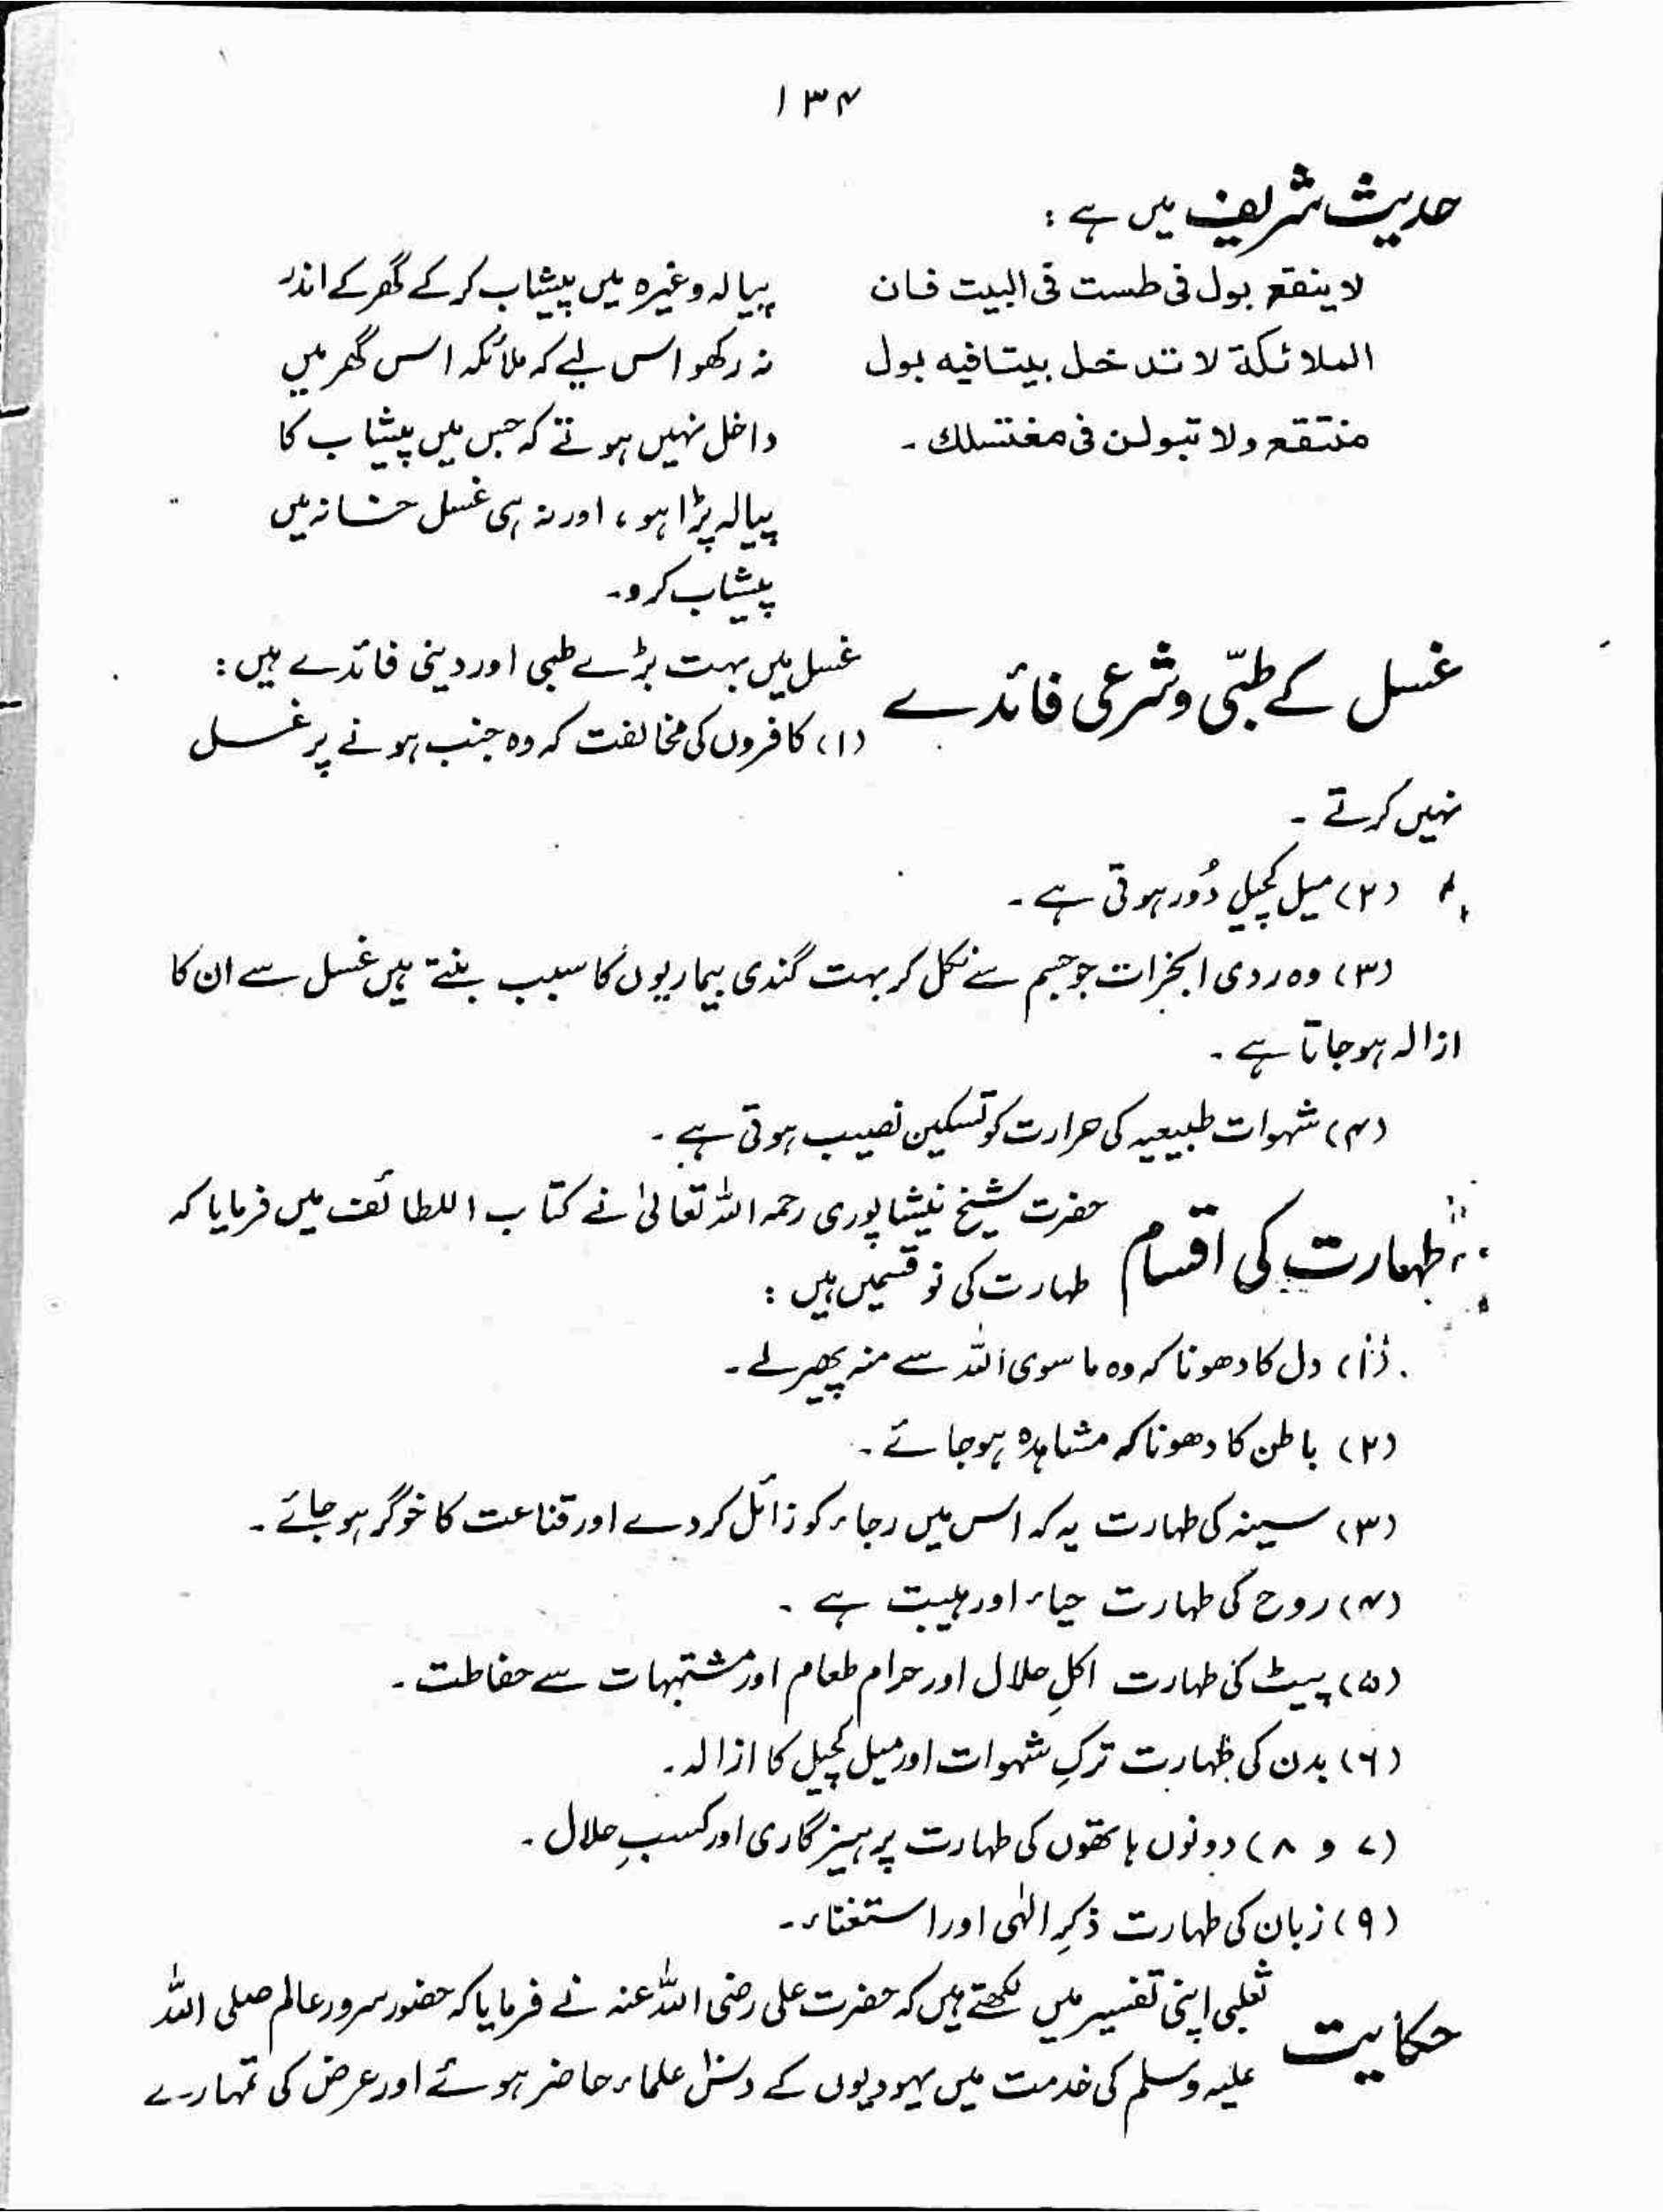 ۱۳۴
حدیث شریف میں ہے :
لا ینقع بول فی طست فی البیت فان
الملائکة لا تدخل بیتا فیه بول
منتقع ولا تبولن فی مغتسلك ۔
پیالہ وغیرہ میں پیشاب کر کے گھر کے اندر
نہ رکھو اس لیے کہ ملائکہ اس گھر میں
داخل نہیں ہوتے کہ جس میں پیشاب کا
پیالہ پڑا ہو ، اور نہ ہی غسل خانہ میں
پیشاب کرو۔
غسل کے طبّی و شرعی فائدے
غسل میں بہت بڑے طبی اور دینی فائدے ہیں :
(۱) کافروں کی مخالفت کہ وہ جنب ہونے پر غسل
نہیں کرتے ۔
(۲) میل کچیل دُور ہوتی ہے ۔
(۳) وہ ردی ابخرات جو جسم سے نکل کر بہت گندی بیماریوں کا سبب بنتے ہیں غسل سے ان کا
ازالہ ہو جاتا ہے ۔
(۴) شہوات طبیعیہ کی حرارت کو تسکین نصیب ہوتی ہے ۔
طہارت کی اقسام
حضرت شیخ نیشاپوری رحمہ اللہ تعالیٰ نے کتاب اللطائف میں فرمایا کہ
طہارت کی نو قسمیں ہیں :
(۱) دل کا دھونا کہ وہ ما سوی اللہ سے منہ پھیر لے ۔
(۲) باطن کا دھونا کہ مشاہدہ ہو جائے ۔
(۳) سینہ کی طہارت یہ کہ اس میں رجاء کو زائل کر دے اور قناعت کا خوگر ہو جائے ۔
(۴) روح کی طہارت حیاء اور ہیبت ہے ۔
(۵) پیٹ کی طہارت اکلِ حلال اور حرام طعام اور مشتبہات سے حفاطت ۔
(۶) بدن کی طہارت ترکِ شہوات اور میل کچیل کا ازالہ ۔
(۷ و ۸) دونوں ہاتھوں کی طہارت پرہیزگاری اور کسبِ حلال ۔
(۹) زبان کی طہارت ذکرِ الٰہی اور استغناء ۔
حکایت
ثعلبی اپنی تفسیر میں لکھتے ہیں کہ حضرت علی رضی اللہ عنہ نے فرمایا کہ حضور سرور عالم صلی اللہ
علیہ وسلم کی خدمت میں یہودیوں کے دس علماء حاضر ہوئے اور عرض کی تمہارے